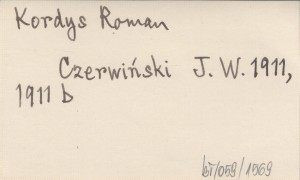 Kordys Roman
Czerwiński J. W. 1911,
1911 b
bT/059/1969